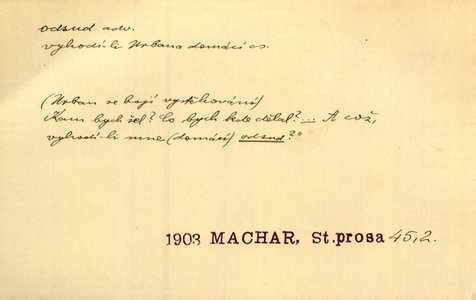 odsud adv.
vyhodí-li Urbana domácí es.
(Urban se bojí vystěhování)
Kam bych šel? Co bych kde dělal?... A což,
vyhodí-li mne (domácí) odsud?"
1903 MACHAR, St.prosa 45,2.